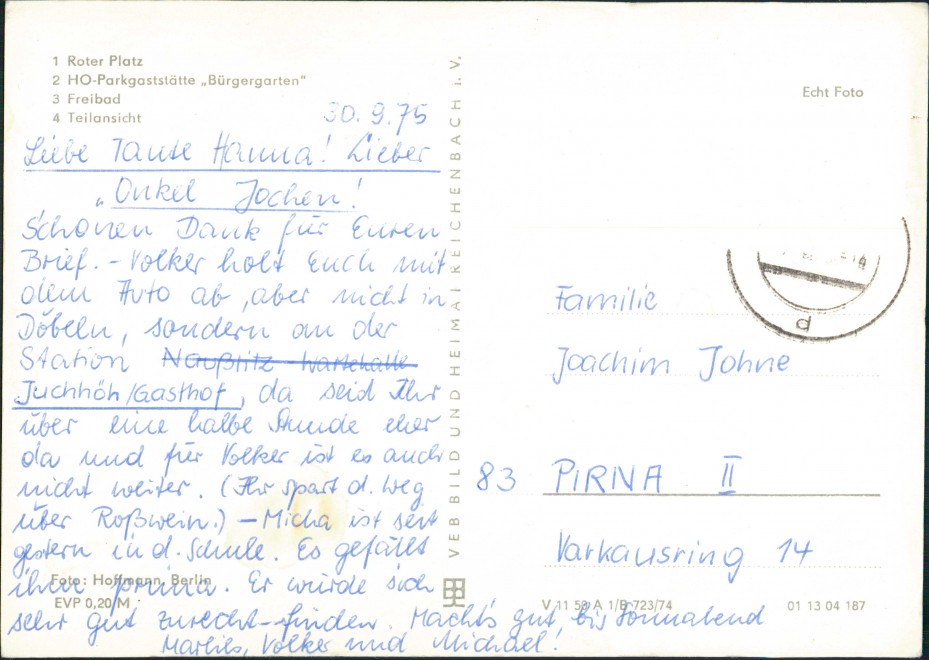 1 Roter Platz
2 HO-Parkgaststätte „Bürgergarten“
3 Freibad
4 Teilansicht
30.9.75
Liebe Tante Hanna! Lieber
Onkel Jochen!
Schönen Dank für Euren
Brief. – Volker holt Euch mit
dem Auto ab, aber nicht in
Döbeln, sondern an der
Station Naußlitz Wartehalle
Juchhöh/Gasthof, da seid Ihr
über eine halbe Stunde eher
da und für Volker ist es auch
nicht weiter. (Ihr spart d. Weg
über Roßwein.) – Micha ist seit
gestern in d. Schule. Es gefällt
ihm prima. Er würde sich
sehr gut zurecht-finden. Macht's gut, bis Sonnabend
Marlies, Volker und Michael!
Foto: Hoffmann, Berlin
EVP 0,20 M
VEB BILD UND HEIMAT REICHENBACH i. V.
Echt Foto
d
Familie
Joachim Johne
83 PIRNA II
Varkausring 14
V 11 50 A 1/B 723/74
01 13 04 187